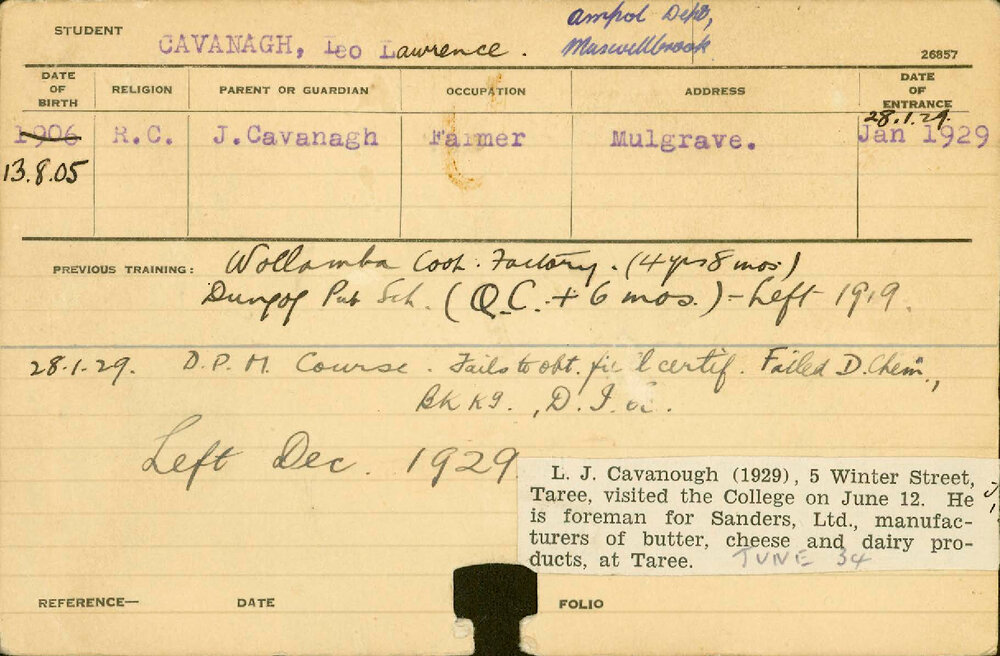 STUDENT CAVANAGH, Leo Lawrence.
Ampol Dept,
Muswellbrook
26857
DATE OF BIRTH RELIGION PARENT OR GUARDIAN OCCUPATION ADDRESS DATE OF ENTRANCE
28.1.29.
1906 R.C. J.Cavanagh Farmer Mulgrave. Jan 1929
13.8.05
PREVIOUS TRAINING: Wollamba Coop. Factory. (4 yrs 8 mos)
Dungog Pub Sch. (Q.C. + 6 mos.) - Left 1919.
28.1.29. D.P.M. Course. Fails to obt. certif. Failed D.Chem.,
BKKg., D.
Left Dec. 1929
L. J. Cavanough (1929), 5 Winter Street,
Taree, visited the College on June 12. He
is foreman for Sanders, Ltd., manufac-
turers of butter, cheese and dairy pro-
ducts, at Taree. JUNE 34
REFERENCE— DATE FOLIO